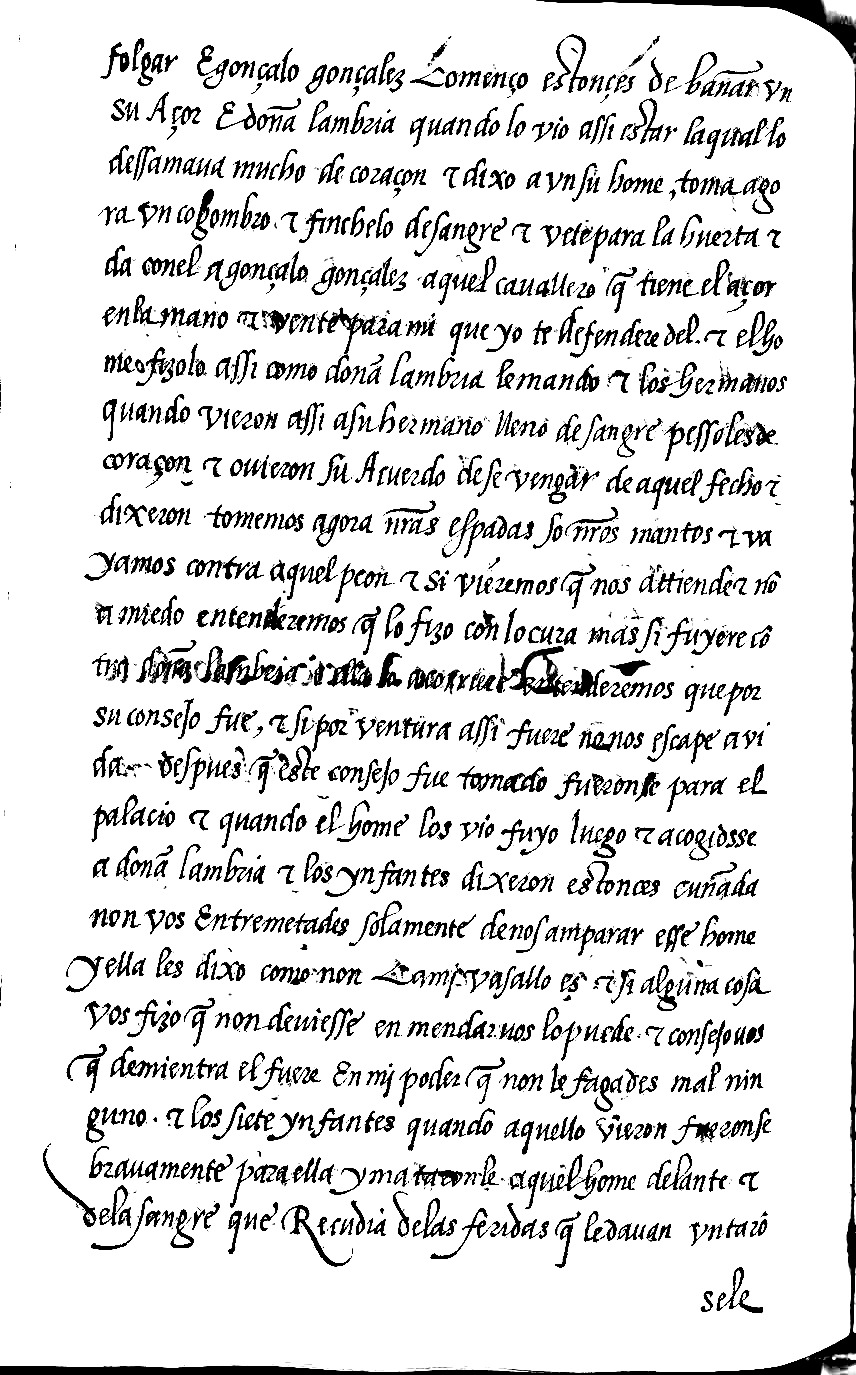 folgar E gonçalo gonçalez Començo estonçes de bañar vn
su Açor E doña lambria quando lo vio assi estar la qual lo
dessamaua mucho de coraçon τ dixo a vn su home, toma ago
ra vn cogombro. τ finchelo de sangre τ vete para la huerta τ
da con el a gonçalo gonçalez aquel cauallero q̃ tiene el açor
en la mano τ vente para mi que yo te defendere del. τ el ho
me fizolo assi como doña lambria le mando τ los hermanos
quando vieron assi a su hermano lleno de sangre pessoles de
coraçon τ ouieron su Acuerdo de se vengar de aquel fecho τ
dixeron tomemos agora nr̃as espadas so nr̃os mantos τ va
yamos contra aquel peon τ si vieremos q̃ nos attiende τ nõ
a miedo entenderemos q̃ lo fizo con locura mas si fuyere cõ
tra doña lambria entenderemos que por
su consejo fue, τ si por ventura assi fuere no nos escape a vi
da. despues q̃ este consejo fue tomado fueronse para el
palacio τ quando el home los vio fuyo luego τ acogiosse
a doña lambria τ los ynfantes dixeron estonces cuñada
non vos Entremetades solamente de nos amparar esse home
y ella les dixo como non Ca mi vasallo es τ si alguna cosa
vos fizo q̃ non deuiesse en mendaruos lo puede. τ consejo uos
q̃ demientra el fuere En mi poder q̃ non le fagades mal nin
guno. τ los siete ynfantes quando aquello vieron fueronse
brauamente para ella y mataronle aquel home delante τ
de la sangre que Recudia de las feridas q̃ le dauan vntarõ
sele